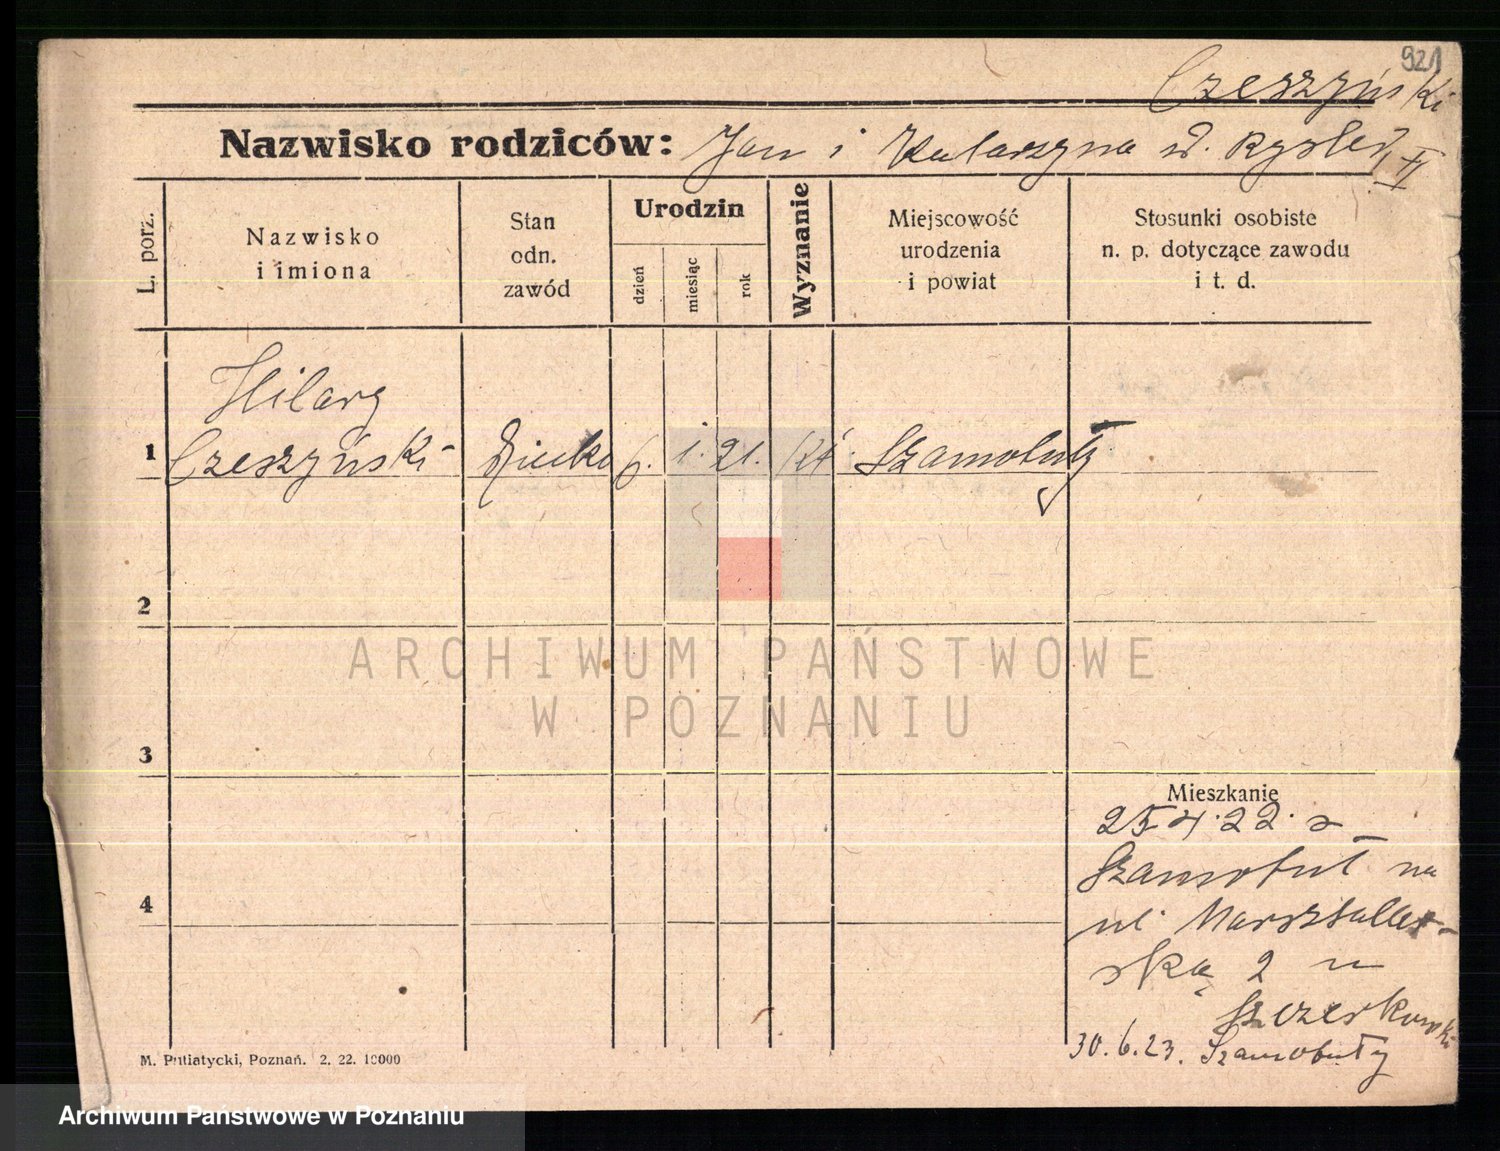 921
Czeszyński
Nazwisko rodziców: Jan i Katarzyna
II
L. porz.
Nazwisko
i imiona
Stan
odn.
zawód
Urodzin
dzień
miesiąc
rok
Wyznanie
Miejscowość
urodzenia
i powiat
Stosunki osobiste
n. p. dotyczące zawodu
i t. d.
Hilary
1 Czeszyński 6. 1. 21. kt Szamotuły
2
ARCHIWUM PAŃSTWOWE
W POZNANIU
3
Mieszkanie
25 4. 22. z
Szamotuł na
4
ul Marsztaler-
ską 2 u
30. 6. 23. Szamotuły
M. Putiatycki, Poznań. 2. 22. 10000
Archiwum Państwowe w Poznaniu